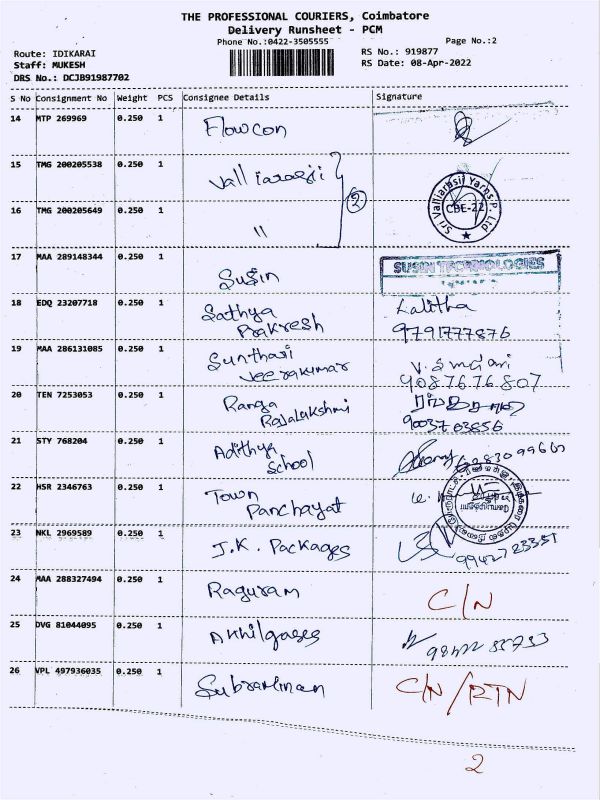 THE PROFESSIONAL COURIERS, Coimbatore
Delivery Runsheet - PCM
Phone No.:0422-3505555 Page No.:2
Route: IDIKARAI RS No.: 919877
Staff: MUKESH RS Date: 08-Apr-2022
DRS No.: DCJB91987702
S No Consignment No Weight PCS Consignee Details Signature
14 MTP 269969 0.250 1 Flowcon
15 TMG 200205538 0.250 1 Valliarasji
2
Sri Valliarasii Yarns P. Ltd
CBE-22
16 TMG 200205649 0.250 1 "
17 MAA 289148344 0.250 1 Susin SUSIN TECHNOLOGIES
18 EDQ 23207718 0.250 1 Sathya Lalitha
Prakresh 9791777876
19 MAA 286131085 0.250 1 Sunthari
Veerakumar 9087676807
20 TEN 7253053 0.250 1 Ranga
Rajalakshmi 9003703856
21 STY 768204 0.250 1 Adithya
School
22 HSR 2346763 0.250 1 Town
Panchayat
23 NKL 2969589 0.250 1 J.K. Packages
24 MAA 288327494 0.250 1 Raguram C/N
25 DVG 81044095 0.250 1 Akhilgases
26 VPL 497936035 0.250 1 Subramnian C/N/RTN
2